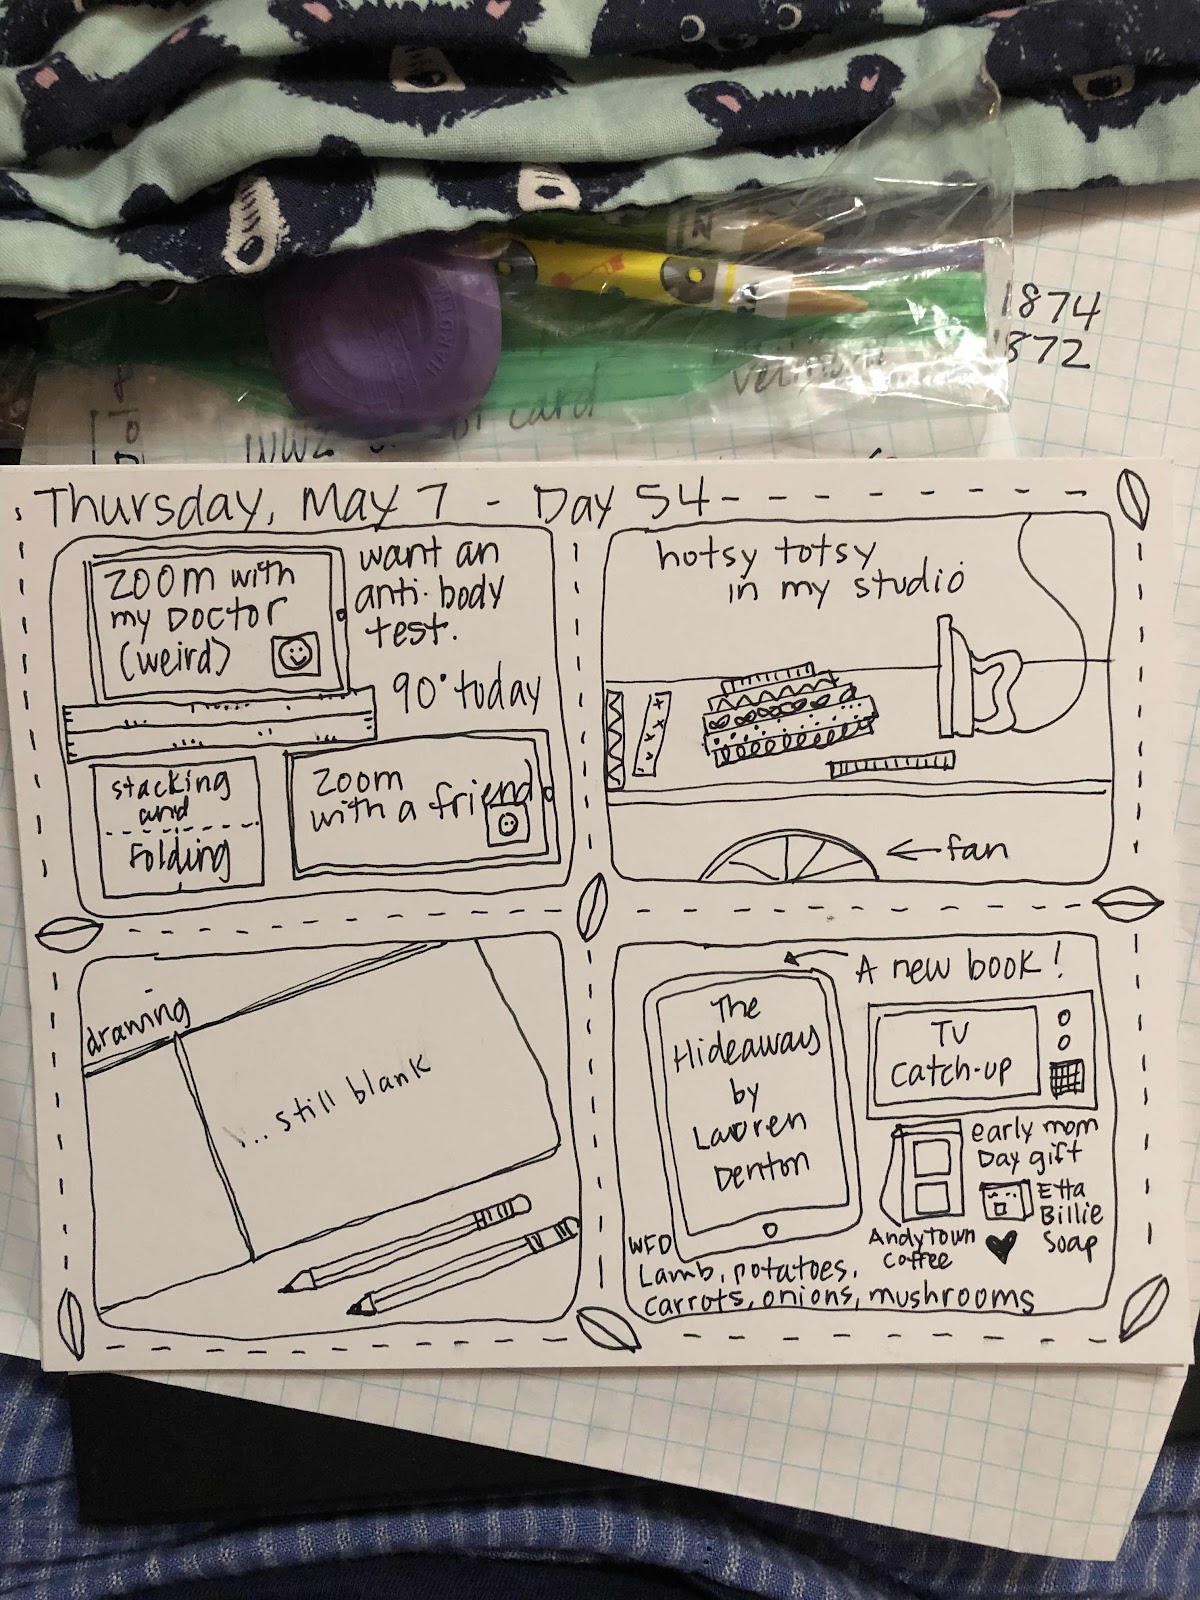 1874
1372
card
Thursday, May 7 - Day 54
Zoom with
my Doctor
(weird)
want an
anti-body
test.
90° today
stacking
and
Folding
Zoom
with a friend
hotsy totsy
in my studio
← fan
drawing
... still blank
A new book!
The
Hideaways
by
Lauren
Denton
TV
Catch-up
early mom
Day gift
Etta
Billie
Soap
Andytown
Coffee
WED
Lamb, potatoes,
carrots, onions, mushrooms